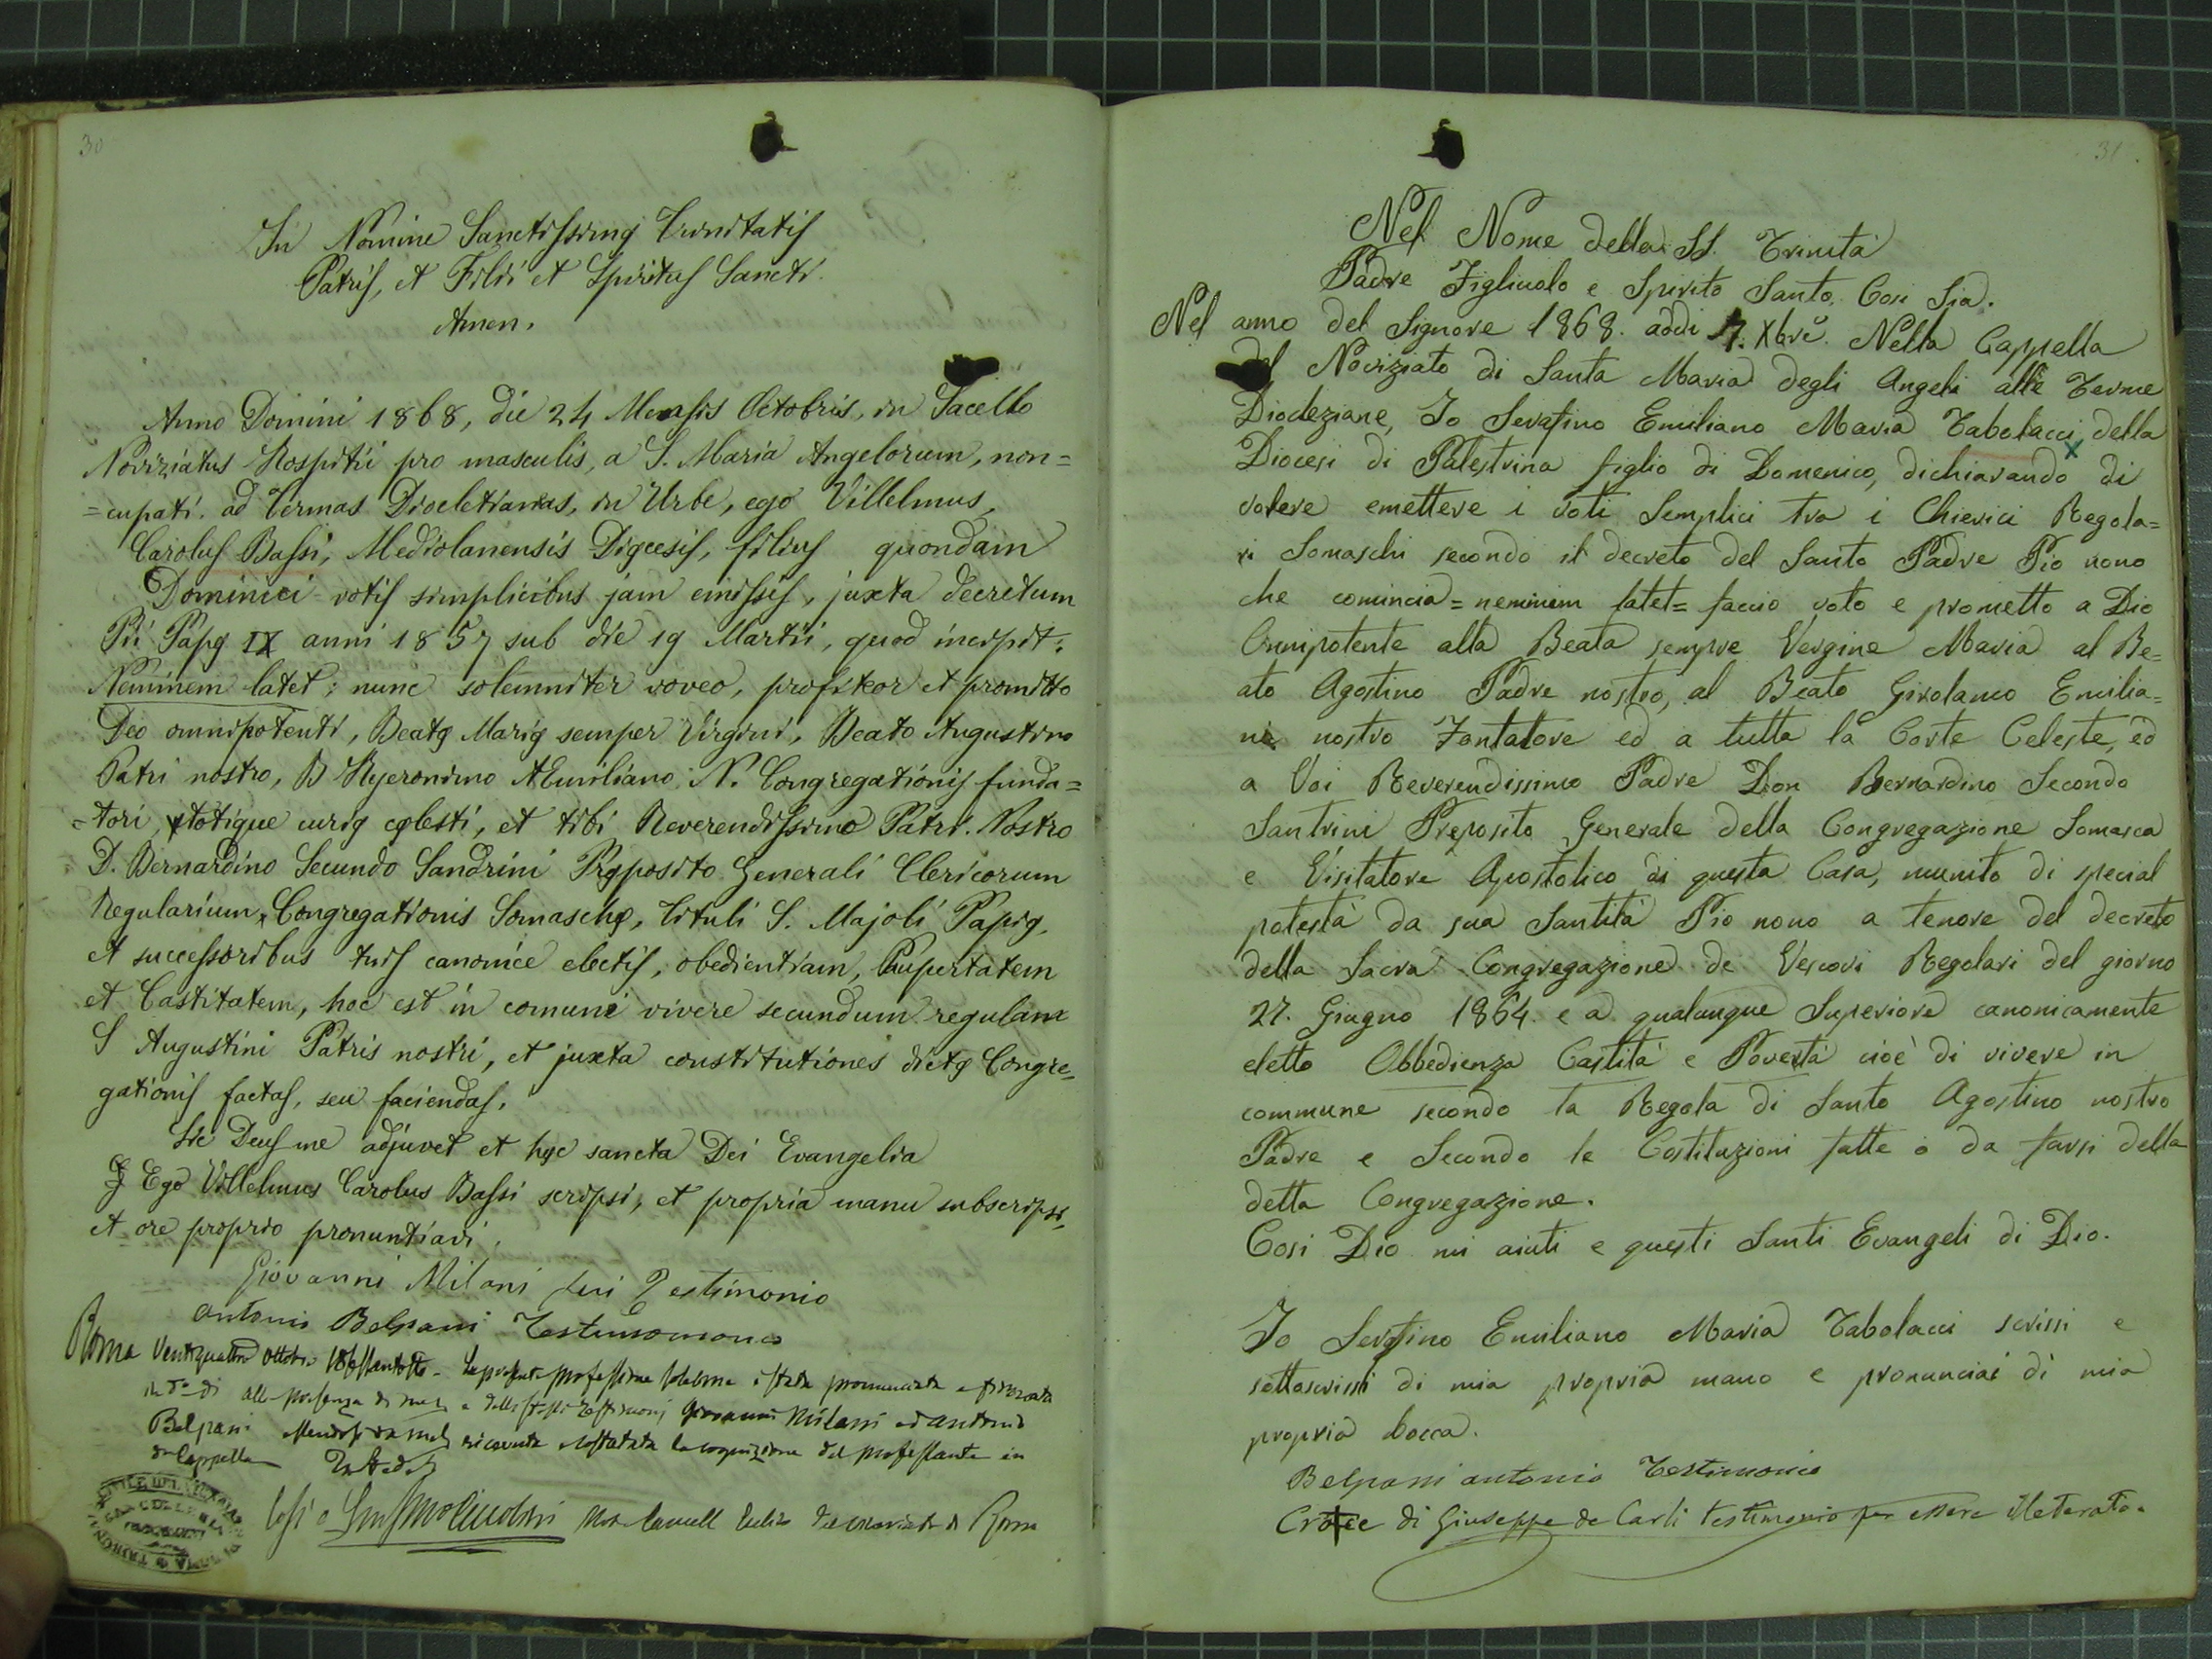 30
In Nomine Sanctissimę Trinitatis
Patris, et Filii et Spiritus Sancti.
Amen.
Anno Domini 1868, die 24 Mensis Octobris, in Sacello
Noviziatus Hospitii pro masculis, a S. Maria Angelorum, non=
=cupati. ad Termas Diocletianas, in Urbe, ego Villelmus,
Carolus Bassi, Mediolanensis Dięcesis, filius quondam
Dominici votis simplicibus jam emissis, juxta decretum
Pii Papę IX anni 1857 sub die 19 Martii, quod incipit:
Neminem latet; nunc solemniter voveo, profiteor et promitto
Deo omnipotenti, Beatę Marię semper Virgini, Beato Augustino
Patri nostro, B Hyeronimo AEmiliano N. Congregationis funda=
=tori, totique curię cęlesti, et tibi Reverendissimo Patri Nostro
D. Bernardino Secundo Sandrini Pręposito Generali Clericorum
Regularium, Congregationis Somaschę, tituli S. Majoli Papię,
et successoribus tuis canonice electis, obedientiam, Paupertatem
et Castitatem, hoc est in comuni vivere secundum regulam
S Augustini Patris nostri, et juxta constitutiones dictę Congre=
gationis factas, seu faciendas.
Sic Deus me adjuvet et hęc sancta Dei Evangelia
Ego Villelmus Carolus Bassi scripsi, et propria manu subscripsi,
et ore proprio pronuntiavi.
Giovanni Milani fui Testimonio
Antonio Belpani Testimonio
Roma Ventiquattro Ottobre professione solenne è stata pronunciata e firmata
alla presenza di me e delli testimonj Giovanni Milani ed Antonio
Belpani riconosciuta la cognizione del professante in
da Cappella In fede
Così è di Roma
31
Nel Nome della SS. Trinità
Padre Figliuolo e Spirito Santo. Cosi Sia.
Nel anno del Signore 1868. addì 17. Xbre. Nella Cappella
del Noviziato di Santa Maria degli Angeli alle Terme
Diocleziane, Io Serafino Emiliano Maria Tabolacci della
Diocesi di Palestrina figlio di Domenico, dichiarando di
volere emettere i voti Semplici tra i Chierici Regola=
ri Somaschi secondo il decreto del Santo Padre Pio nono
che comincia=neminem latet=faccio voto e prometto a Dio
Onnipotente alla Beata sempre Vergine Maria al Be=
ato Agostino Padre nostro, al Beato Girolamo Emilia=
ni nostro Fontatore ed a tutta la Corte Celeste, ed
a Voi Reverendissimo Padre Don Bernardino Secondo
Santrini Preposito Generale della Congregazione Somasca
e Visitatore Apostolico di questa Casa, munito di special
potestà da sua Santità Pio nono a tenore del decreto
della Sacra Congregazione de Vescovi Regolari del giorno
27. Giugno 1864. e a qualunque Superiore canonicamente
eletto Obbedienza Castità e Povertà cioè di vivere in
commune secondo la Regola di Santo Agostino nostro
Padre e Secondo le Costituzioni fatte o da farsi della
detta Congregazione.
Cosi Dio mi aiuti e questi Santi Evangeli di Dio.
Io Serafino Emiliano Maria Tabolacci scrissi e
sottoscrissi di mia propria mano e pronunciai di mia
propria bocca.
Belpani antonio Testimonio
Croce di Giuseppe de Carli testimonio per essere illeterato.